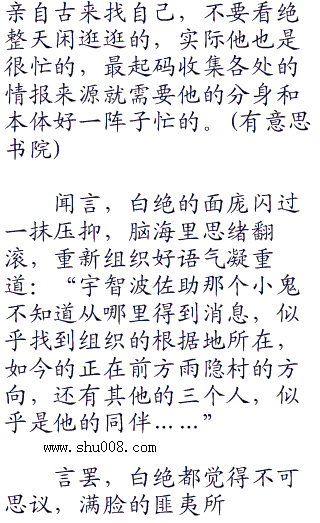 亲自古来找自己，不要看绝
整天闲逛逛的，实际他也是
很忙的，最起码收集各处的
情报来源就需要他的分身和
本体好一阵子忙的。(有意思
书院)
闻言，白绝的面庞闪过
一抹压抑，脑海里思绪翻
滚，重新组织好语气凝重
道：“宇智波佐助那个小鬼
不知道从哪里得到消息，似
乎找到组织的根据地所在，
如今的正在前方雨隐村的方
向，还有其他的三个人，似
乎是他的同伴……”
www.shu008.com
言罢，白绝都觉得不可
思议，满脸的匪夷所